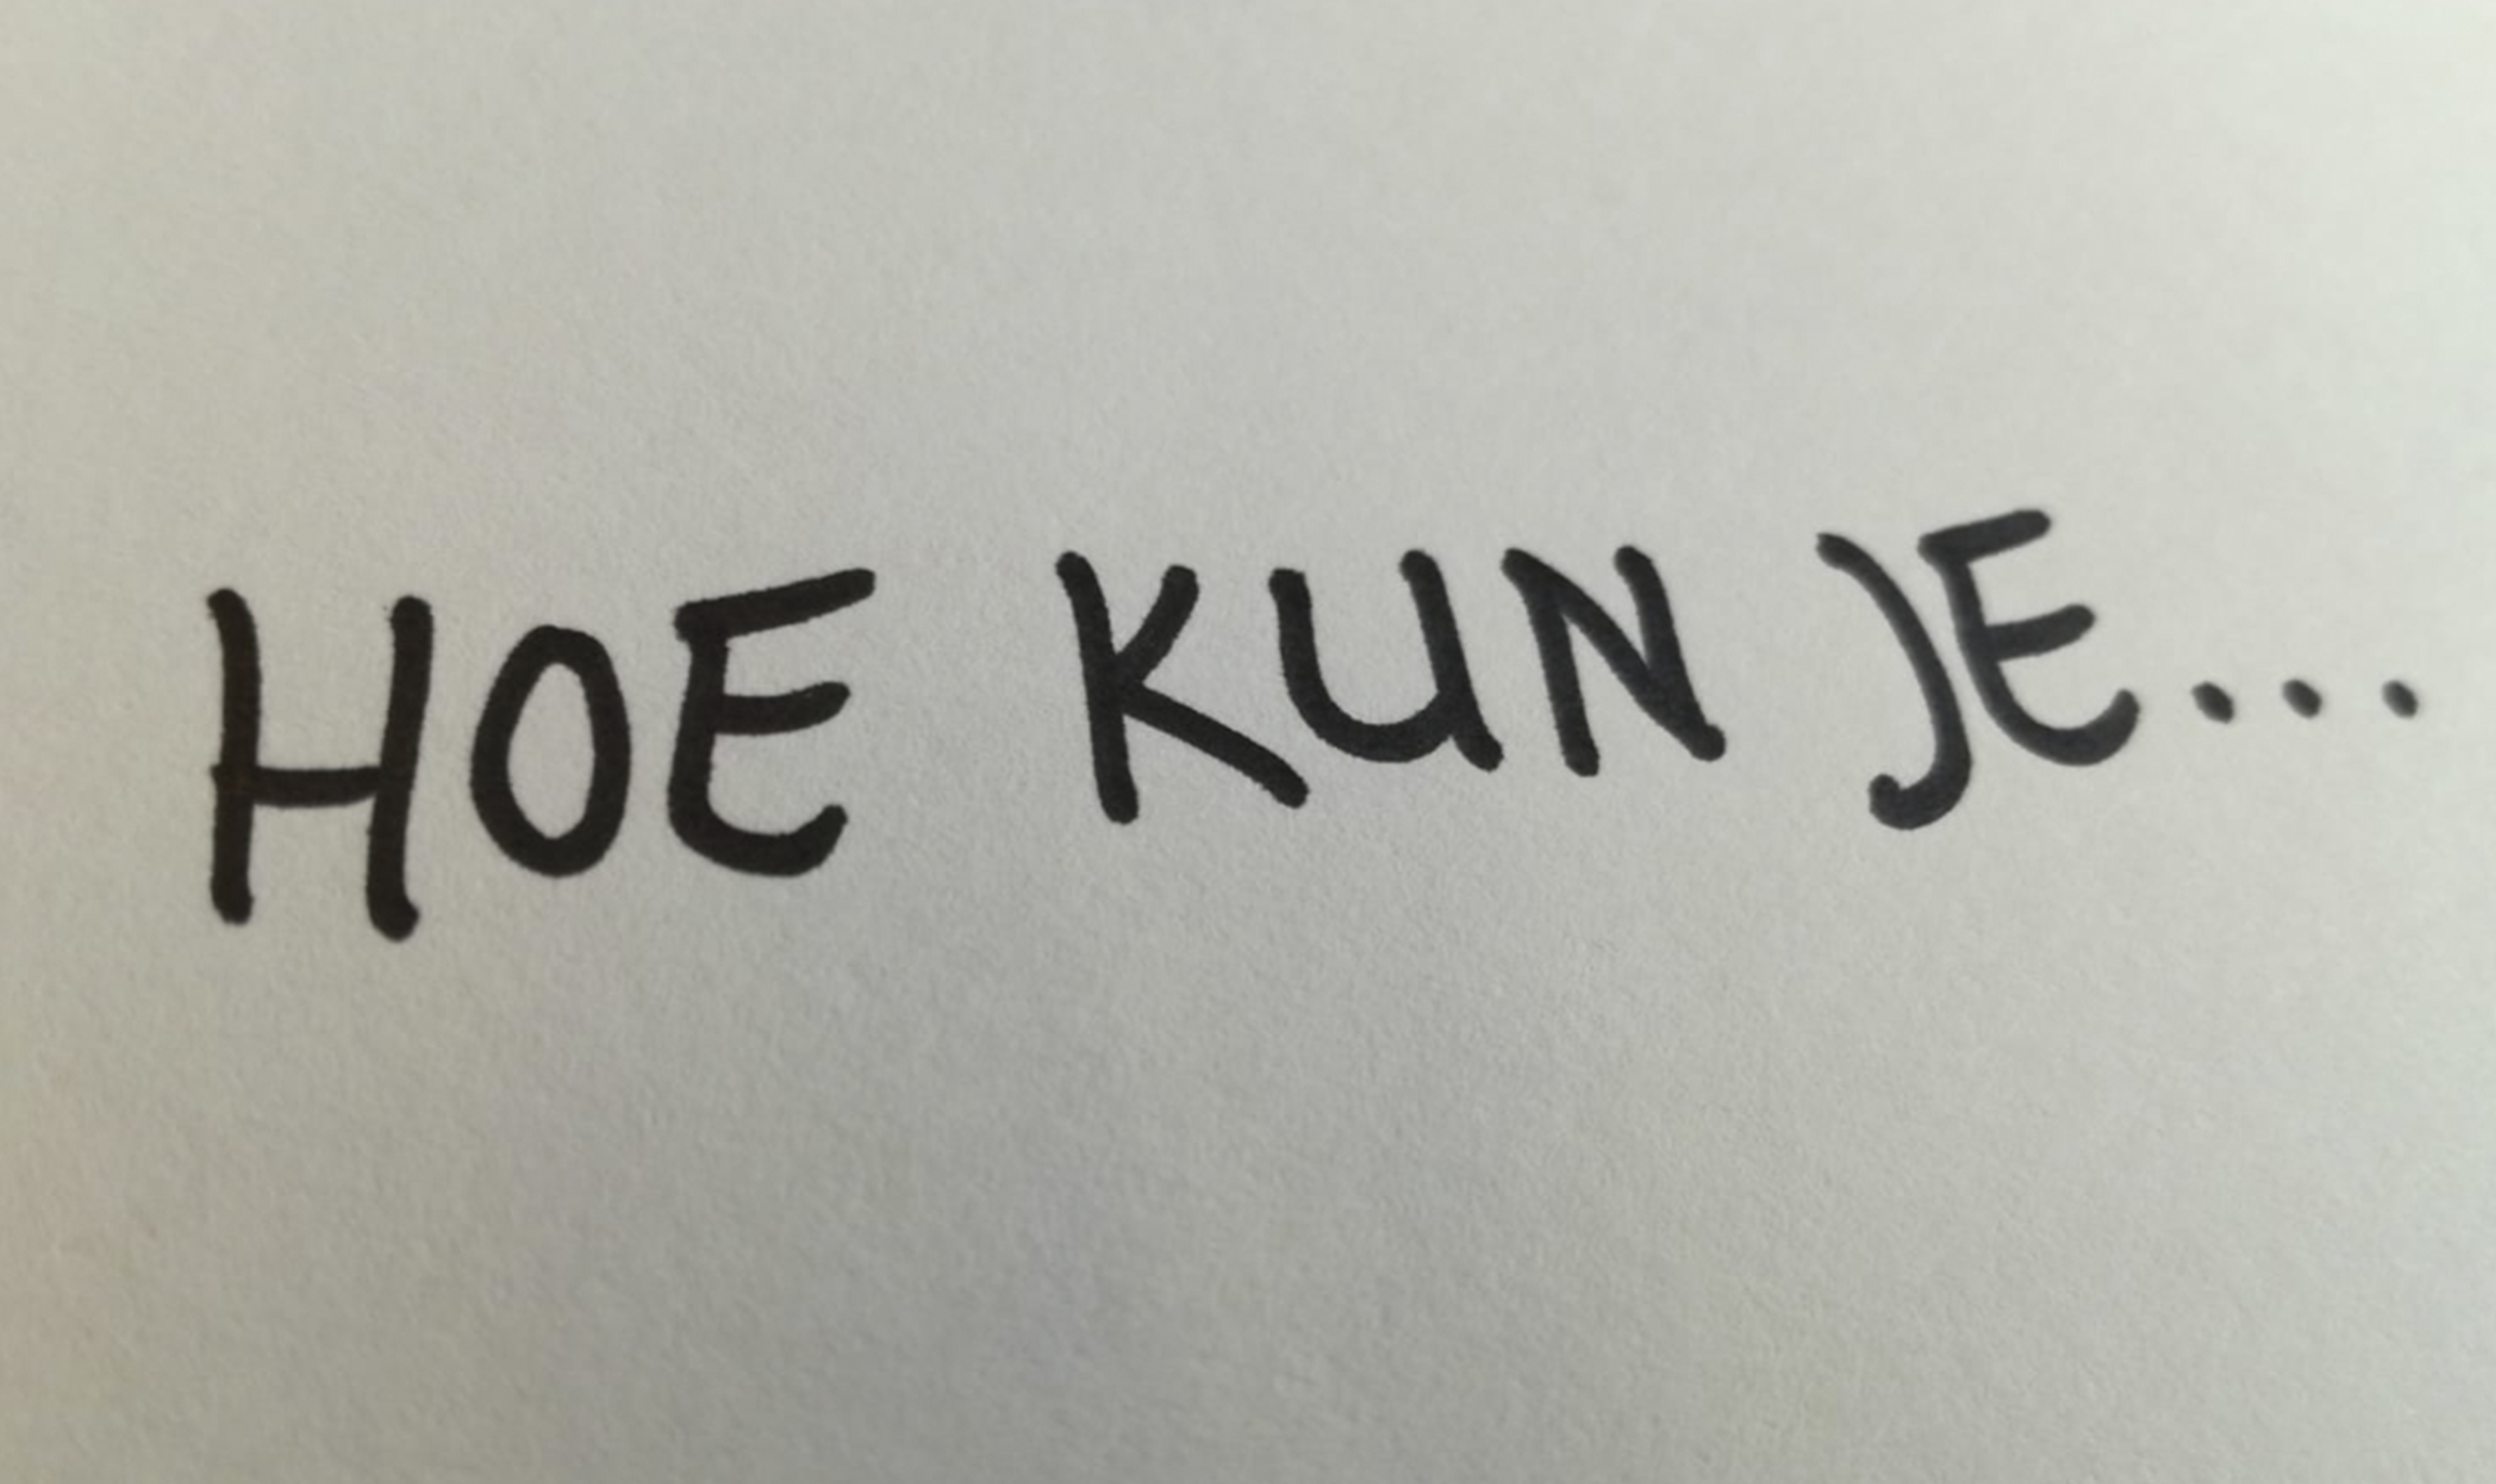 HOE KUN JE...